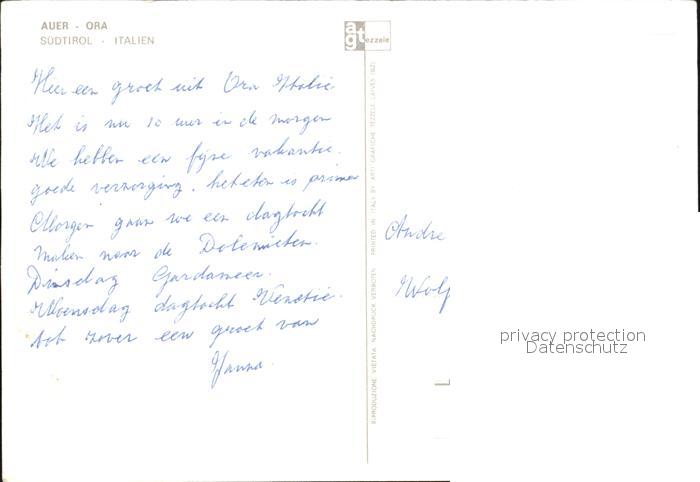 AUER - ORA
SÜDTIROL - ITALIEN
agt
ezzele
Hier een groet uit Ora Italie
Het is nu 10 uur in de morgen
We hebben een fijne vakantie.
goede verzorging. het eten is prima
Morgen gaan we een dagtocht
maken naar de Dolemieten.
Dinsdag Gardameer.
Woensdag dagtocht Venetie.
tot zover een groet van
Hanna.
RIPRODUZIONE VIETATA NACHDRUCK VERBOTEN PRINTED IN ITALY BY ARTI GRAFICHE TEZZELE LAIVES (BZ)
Andre
Wolf
privacy protection
Datenschutz